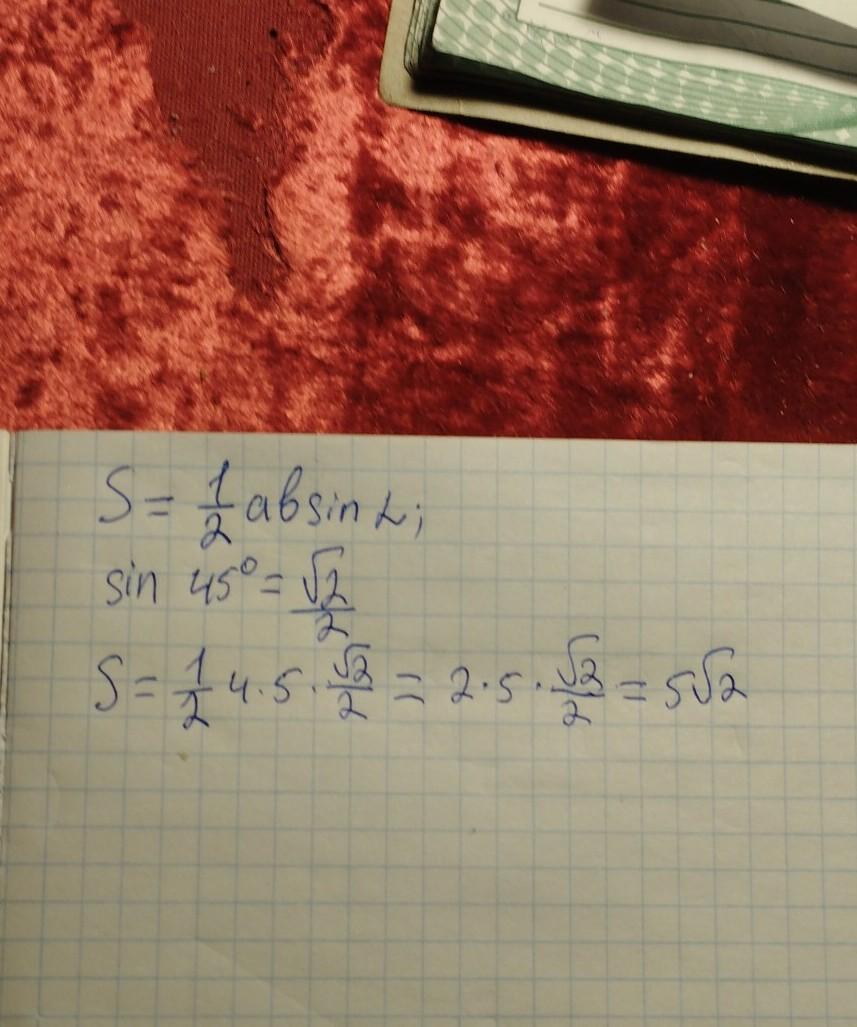 S = 1/2 ab sin α;
sin 45° = √2/2
S = 1/2 4 · 5 · √2/2 = 2 · 5 · √2/2 = 5√2